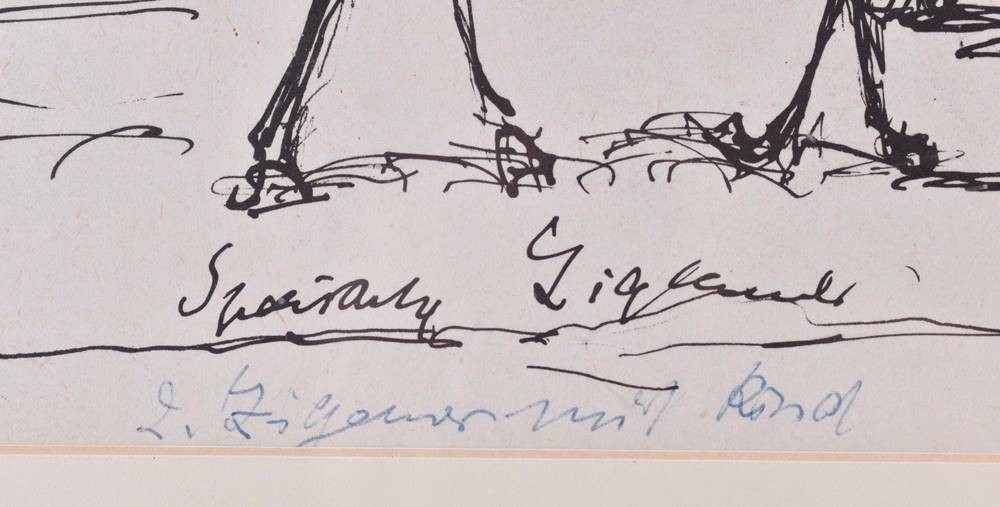 Spanische Zigeuner
2. Zigeuner mit Kind